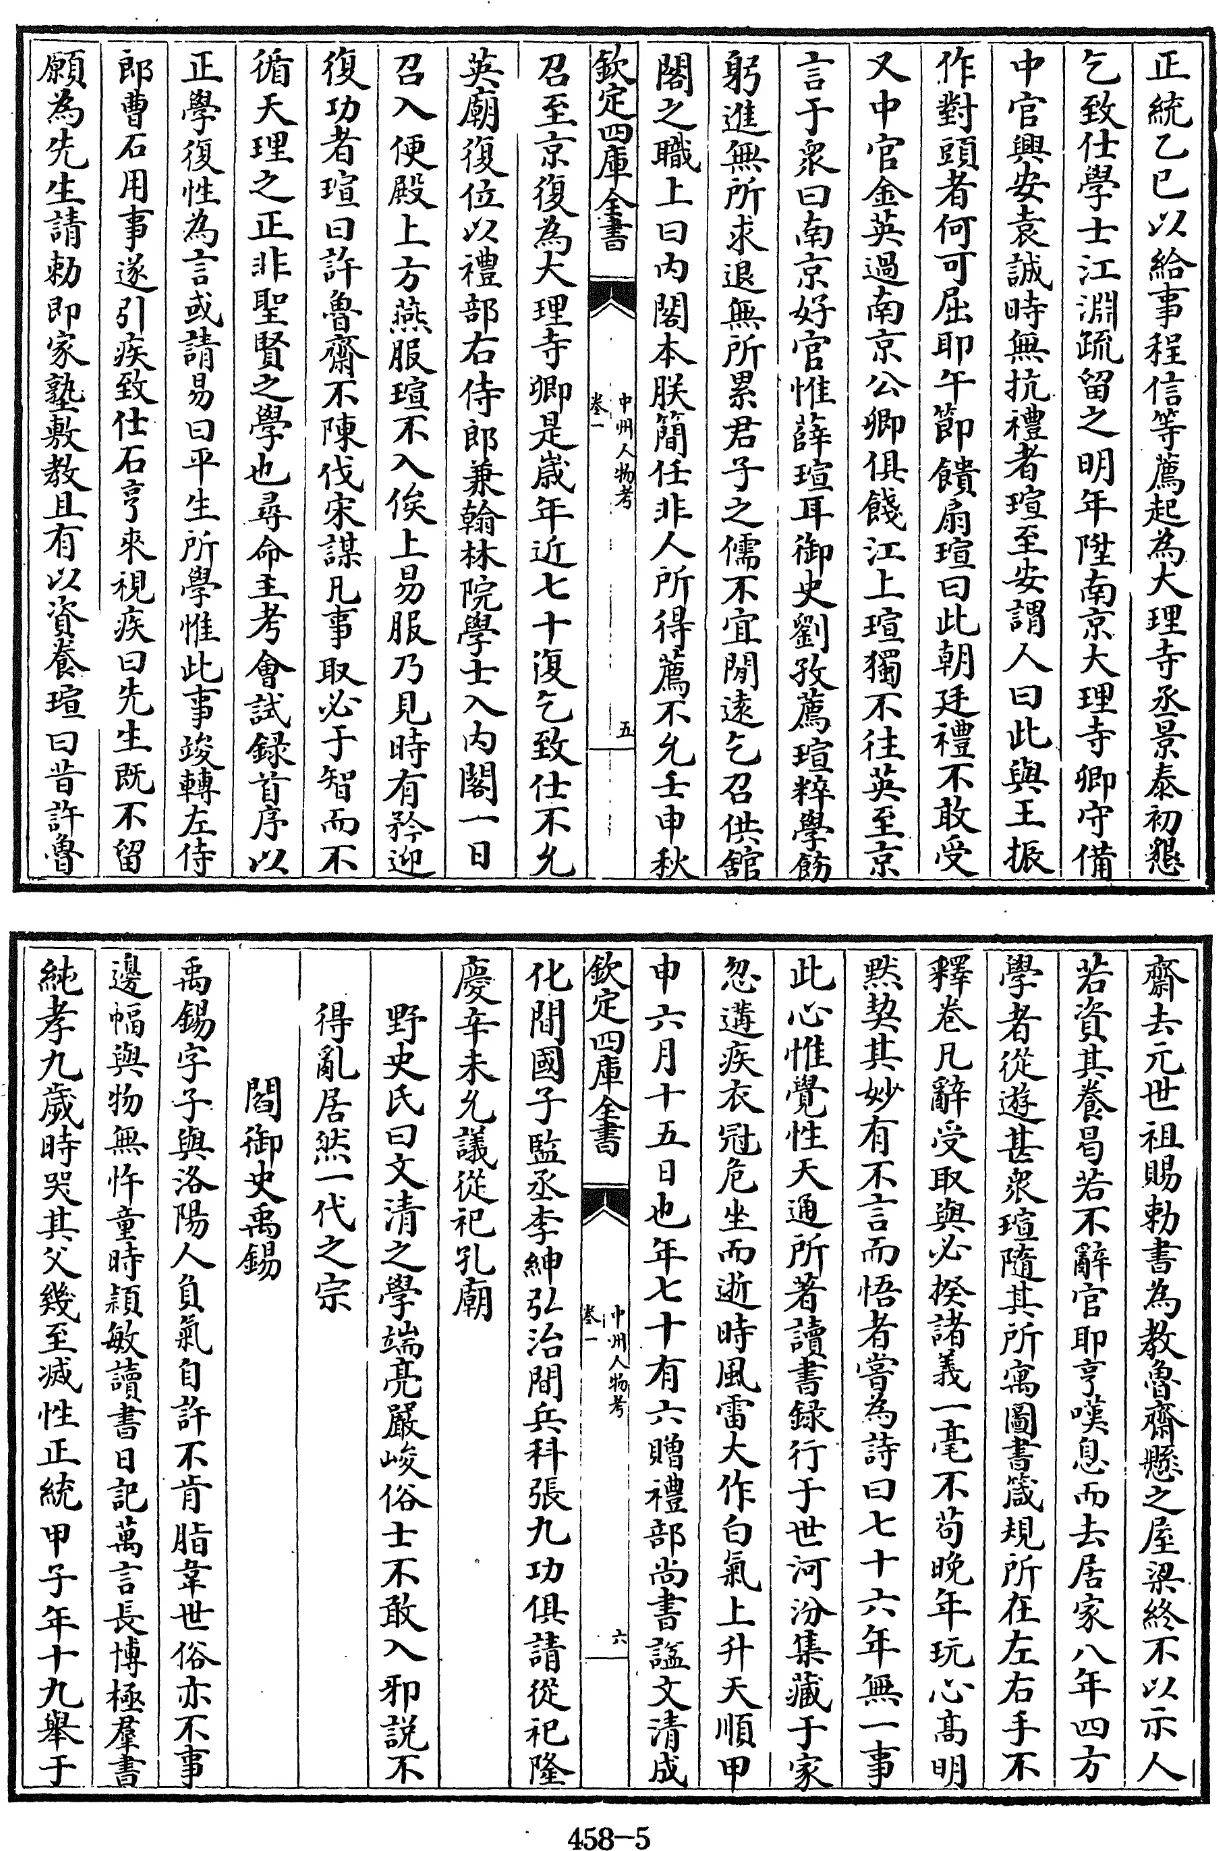 正統乙巳以給事程信等薦起為大理寺丞景泰初懇
乞致仕學士江淵疏留之明年陞南京大理寺卿守備
中官興安袁誠時無抗禮者瑄至安謂人曰此與王振
作對頭者何可屈耶午節饋扇瑄曰此朝廷禮不敢受
又中官金英過南京公卿俱餞江上瑄獨不往英至京
言于衆曰南京好官惟薛瑄耳御史劉孜薦瑄粹學飭
躬進無所求退無所累君子之儒不宜閒遠乞召供舘
閣之職上曰内閣本朕簡任非人所得薦不允壬申秋
欽定四庫全書
中州人物考
卷一
五
召至京復為大理寺卿是歳年近七十復乞致仕不允
英廟復位以禮部右侍郎兼翰林院學士入内閣一日
召入便殿上方燕服瑄不入俟上易服乃見時有矜迎
復功者瑄曰許魯齋不陳伐宋謀凡事取必于智而不
循天理之正非聖賢之學也尋命主考會試録首序以
正學復性為言或請易曰平生所學惟此事竣轉左侍
郎曹石用事遂引疾致仕石亨來視疾曰先生既不留
願為先生請勅即家塾敷教且有以資養瑄曰昔許魯
齋去元世祖賜勅書為教魯齋懸之屋梁終不以示人
若資其養曷若不辭官耶亨嘆息而去居家八年四方
學者從遊甚衆瑄隨其所寓圖書箴規所在左右手不
釋卷凡辭受取與必揆諸義一毫不苟晚年玩心髙明
黙契其妙有不言而悟者嘗為詩曰七十六年無一事
此心惟覺性天通所著讀書録行于世河汾集藏于家
忽遘疾衣冠危坐而逝時風雷大作白氣上升天順甲
申六月十五日也年七十有六贈禮部尚書諡文清成
欽定四庫全書
中州人物考
卷一
六
化間國子監丞李紳弘治間兵科張九功俱請從祀隆
慶辛未允議從祀孔廟
野史氏曰文清之學端亮嚴峻俗士不敢入邪説不
得亂居然一代之宗
閻御史禹錫
禹錫字子與洛陽人負氣自許不肯脂韋世俗亦不事
邊幅與物無忤童時穎敏讀書日記萬言長博極羣書
純孝九歲時哭其父幾至滅性正統甲子年十九舉于
458-5